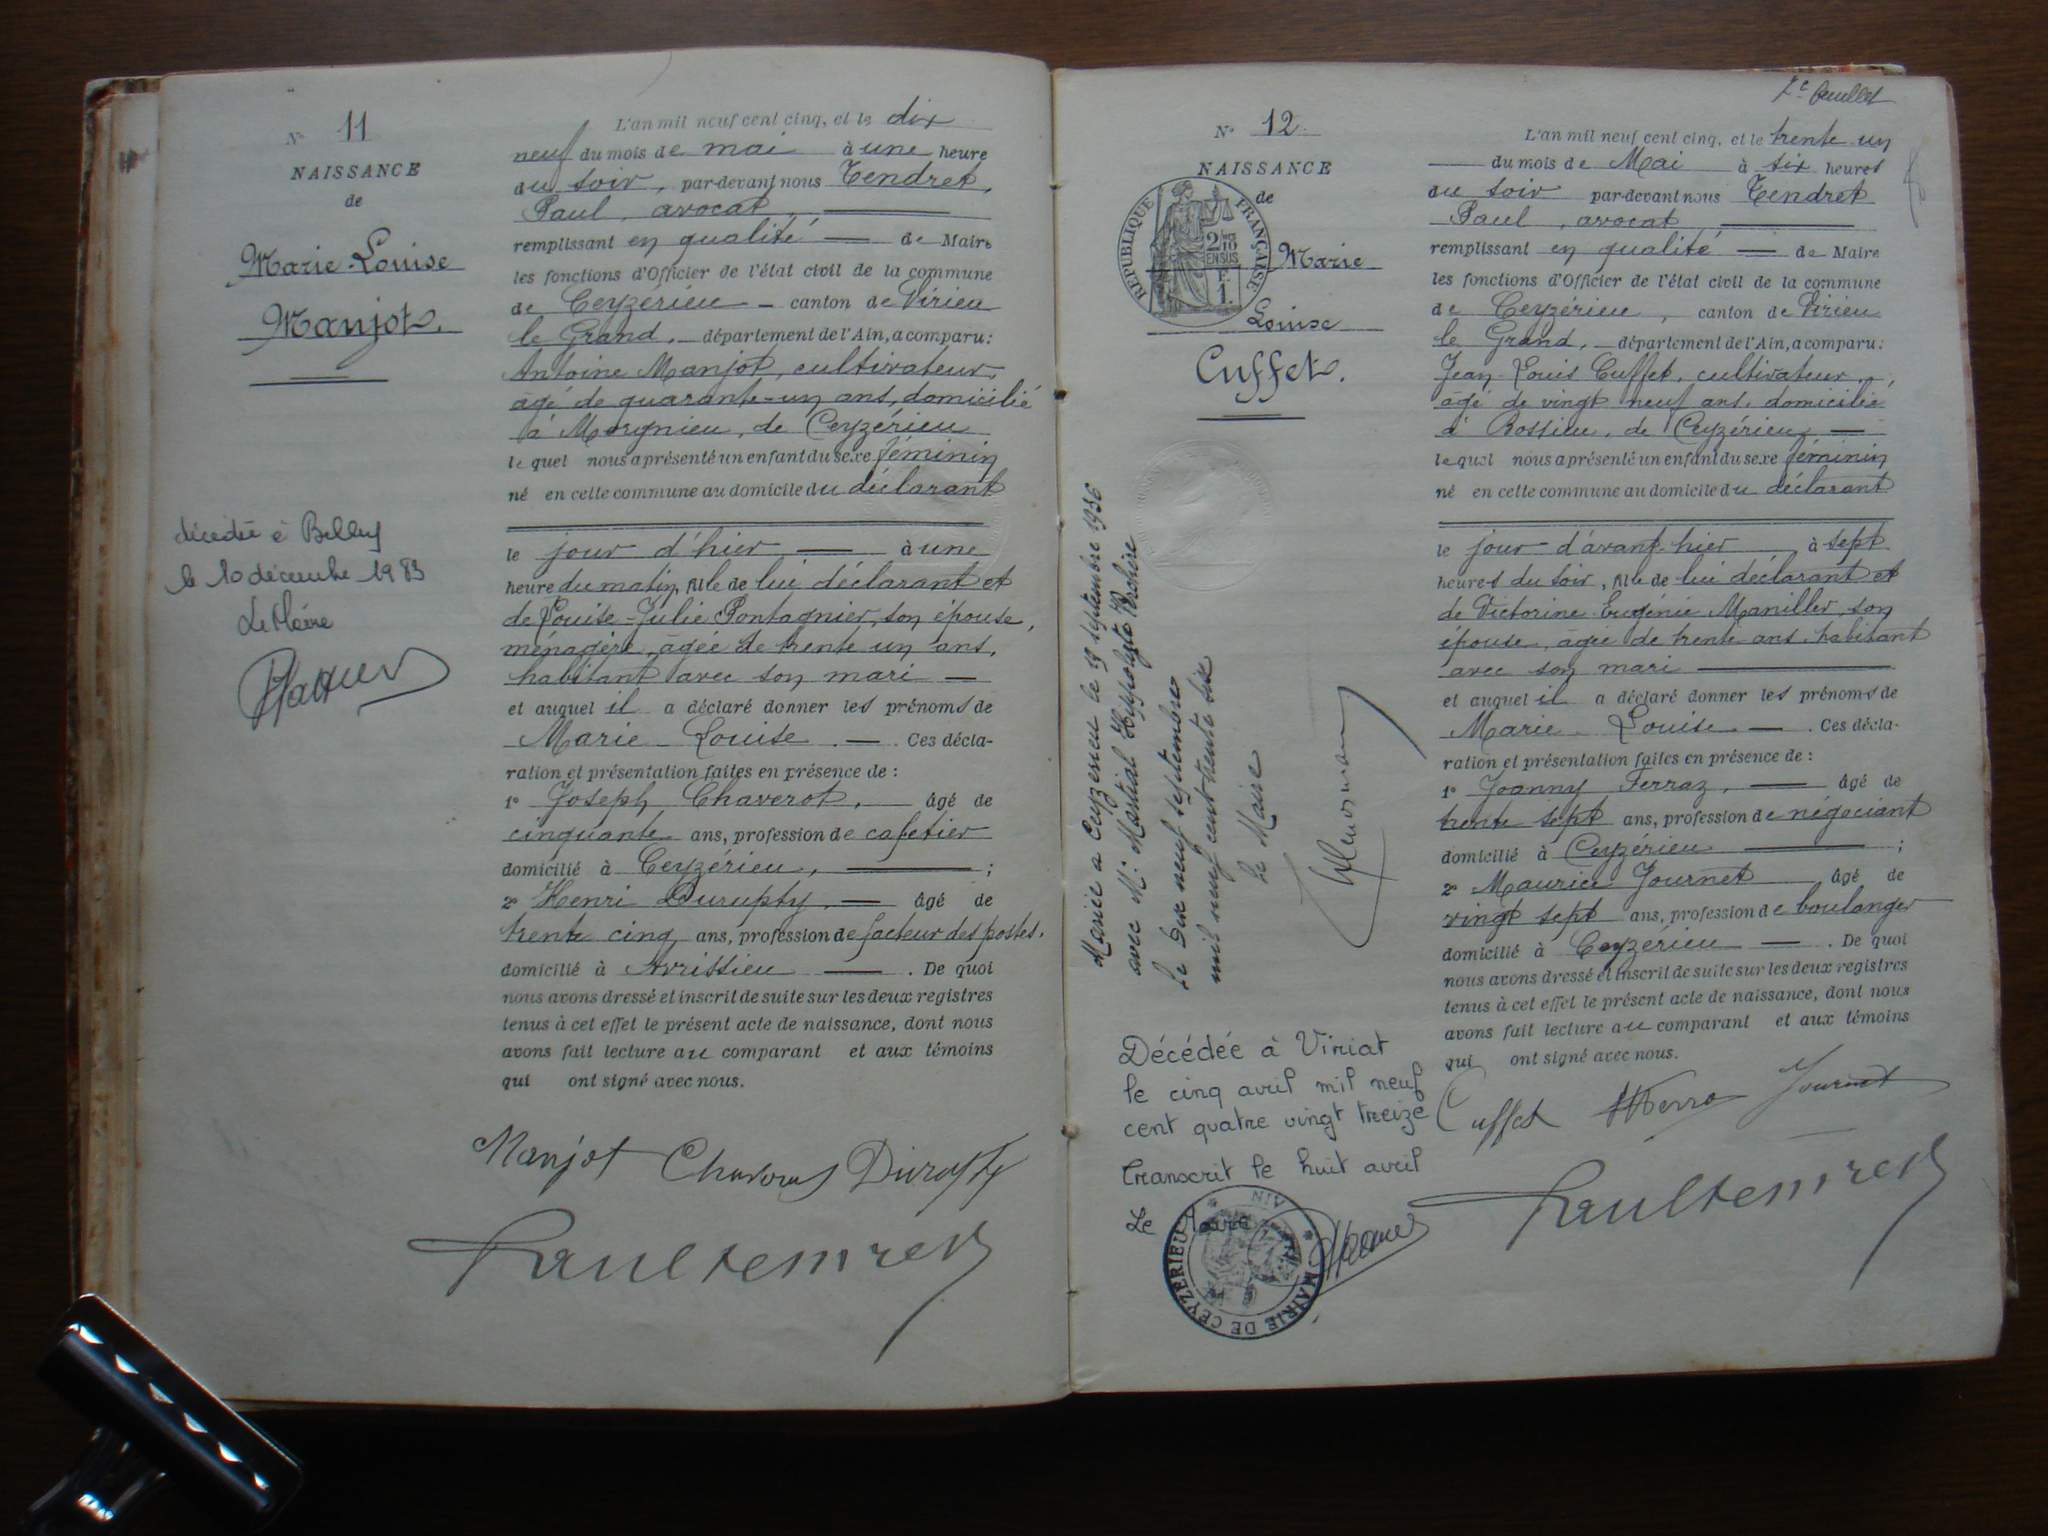 N° 11
NAISSANCE
de
Marie-Louise
Manjot.
décédée à Belley
le 10 décembre 1983
Le Maire
L'an mil neuf cent cinq, et le dix
neuf du mois de mai à une heure
du soir, par-devant nous Tendret,
Paul, avocat
remplissant en qualité de Maire
les fonctions d'Officier de l'état civil de la commune
de Ceyzérieu canton de Virieu
le Grand, département de l'Ain, a comparu:
Antoine Manjot, cultivateur,
âgé de quarante-un ans, domicilié
à Morgnieu, de Ceyzérieu
lequel nous a présenté un enfant du sexe féminin
né en cette commune au domicile du déclarant
le jour d'hier à une
heure du matin, fille de lui déclarant et
de Louise-Julie Pontagnier, son épouse,
ménagère, âgée de trente un ans,
habitant avec son mari
et auquel il a déclaré donner les prénoms de
Marie-Louise. Ces décla-
ration et présentation faites en présence de :
1° Joseph Chaverot, âgé de
cinquante ans, profession de cafetier
domicilié à Ceyzérieu, ;
2° Henri Durupty, âgé de
trente cinq ans, profession de facteur des postes,
domicilié à Avrissieu. De quoi
nous avons dressé et inscrit de suite sur les deux registres
tenus à cet effet le présent acte de naissance, dont nous
avons fait lecture au comparant et aux témoins
qui ont signé avec nous.
Manjot Chaverot Durupty
Paul Tendret
7e feuillet
N° 12.
NAISSANCE
de
RÉPUBLIQUE FRANÇAISE
2/10 EN SUS
F.
1.
Marie
Louise
Cuffet.
Mariée à Ceyzérieu le 19 septembre 1936
avec Mr. Martial Hippolyte
le dix neuf septembre
mil neuf cent trente six
le Maire
Décédée à Viriat
le cinq avril mil neuf
cent quatre vingt treize
Transcrit le huit avril
Le Maire
MAIRIE DE CEYZERIEU * AIN *
L'an mil neuf cent cinq, et le trente-un
du mois de Mai à six heures
du soir par-devant nous Tendret
Paul, avocat
remplissant en qualité de Maire
les fonctions d'Officier de l'état civil de la commune
de Ceyzérieu, canton de Virieu
le Grand, département de l'Ain, a comparu:
Jean-Louis Cuffet, cultivateur,
âgé de vingt neuf ans, domicilié
à Rossieu, de Ceyzérieu
lequel nous a présenté un enfant du sexe féminin
né en cette commune au domicile du déclarant
le jour d'avant-hier à sept
heures du soir, fille de lui déclarant et
de Victorine Eugénie Manillier, son
épouse, âgée de trente ans, habitant
avec son mari
et auquel il a déclaré donner les prénoms de
Marie-Louise. Ces décla-
ration et présentation faites en présence de :
1° Joanny Ferraz, âgé de
trente sept ans, profession de négociant
domicilié à Ceyzérieu ;
2° Maurice Journet âgé de
vingt sept ans, profession de boulanger
domicilié à Ceyzérieu. De quoi
nous avons dressé et inscrit de suite sur les deux registres
tenus à cet effet le présent acte de naissance, dont nous
avons fait lecture au comparant et aux témoins
qui ont signé avec nous.
Cuffet Ferraz Journet
Paul Tendret